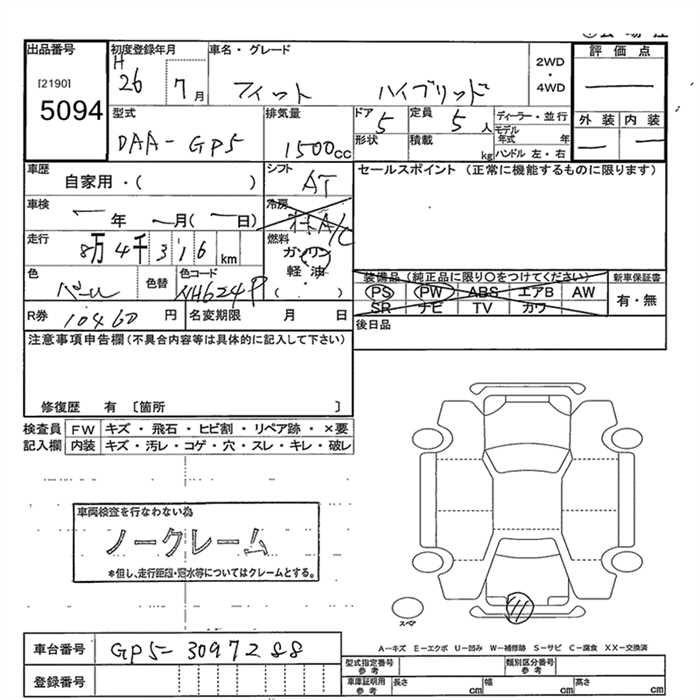 出品番号
[2190]
5094
初度登録年月
H
26 7月
車名・グレード
フィット ハイブリッド
2WD
・
4WD
評価点
外装 内装
型式
DAA-GP5
排気量
1500cc
ドア
5
形状
定員
5人
積載
kg
ディーラー・並行
モデル
年式 年
ハンドル 左・右
車歴
自家用・( )
シフト
AT
セールスポイント (正常に機能するものに限ります)
車検
年 月( 日)
冷房
A/C
走行
8万4千316km
燃料
ガソリン
軽・油
( )
色
パール
色替
色コード
NH624P
装備品 (純正品に限り○をつけてください)
PS PW ABS エアB AW
SR ナビ TV カワ
新車保証書
有・無
R券 10460円
名変期限 月 日
後日品
注意事項申告欄(不具合内容等は具体的に記入して下さい)
修復歴 有 〔箇所 〕
検査員
記入欄
FW キズ・飛石・ヒビ割・リペア跡・×要
内装 キズ・汚レ・コゲ・穴・スレ・キレ・破レ
車両検査を行なわない為
ノークレーム
*但し、走行距離・冠水等についてはクレームとする。
スペア
A-キズ E-エクボ U-凹み W-補修跡 S-サビ C-腐食 XX-交換済
車台番号 GP5-3097288
登録番号
型式指定番号
参考
類別区分番号
参考
車庫証明用
参考
長さ cm
幅 cm
高さ cm